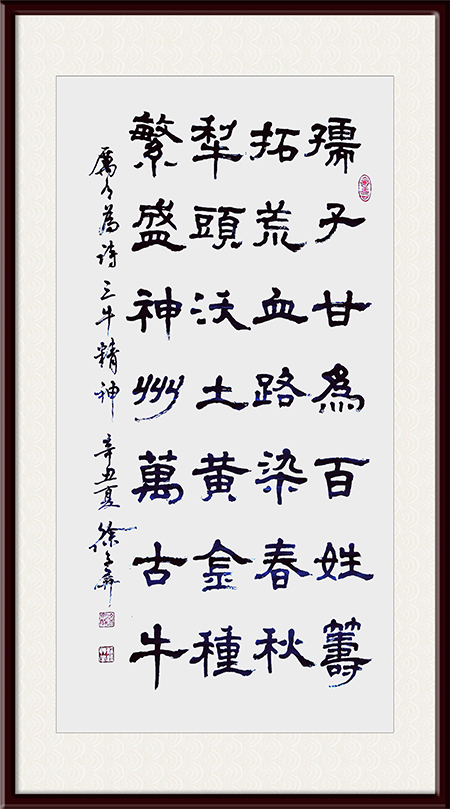 孺子甘為百姓籌
拓荒血路染春秋
犁頭沃土黃金種
繁盛神州萬古牛
厲今為诗三牛精神 辛丑夏 徐子彝